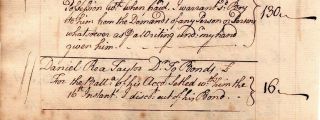 Possession Got when had. I warrant
to him from the Demands of any Person or Persons
whatsoever as P a Writing und.r my hand
given him
130
Daniel Rea Taylor D.r To Bonds
For the Ball.a of his Acco.t Setled w.th him the
16.th Instant I disco.t out of his Bond
16